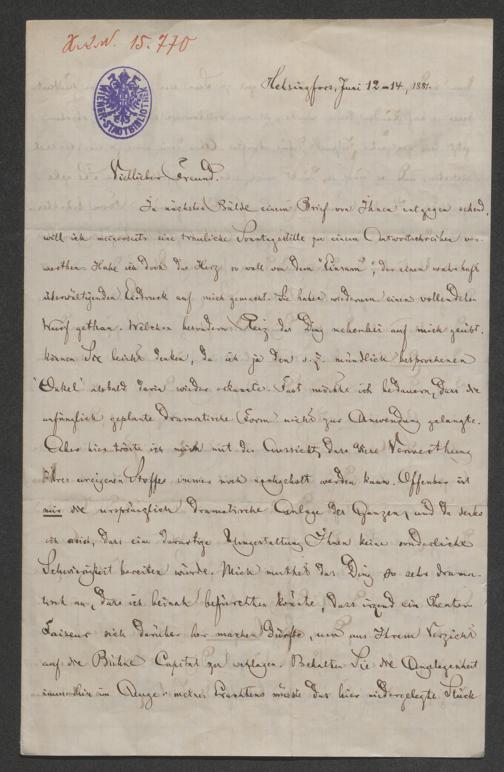 I. N. 15.770
WIENER STADTBIBLIOTHEK
Helsingfors, Juni 12–14, 1881.
Freund.
In nächster Bälde einem Brief von Ihnen entgegen sehend,
will ich meinerseits eine trauliche Sonntagsstille zu einem Antwortschreiben ver-
werthen. Habe ich doch das Herz so voll von dem "Einsam", der einen wahrhaft
überwältigenden Eindruck auf mich gemacht. Sie haben wiederum einen vollendeten
Wurf gethan. Welchen besondern Reiz das Ding nebenbei auf mich geübt,
können Sie leicht denken, da ich ja den s. z. mündlich besprochenen
"Onkel" alsbald darin wieder erkannte. Fast möchte ich bedauern, dass die
anfänglich geplante dramatische Form nicht zur Anwendung gelangte.
Aber hier tröste ich mich mit der Aussicht, dass diese Verwerthung
Ihres ureigenen Stoffes immer noch nachgeholt werden kann. Offenbar ist
mir die ursprünglich dramatische Anlage des Ganzen, und da denke
ich mir, dass eine derartige Umgestaltung Ihnen keine sonderliche
Schwierigkeit bereiten würde. Mich muthet das Ding so sehr drama-
tisch an, dass ich beinah befürchten könnte, dass irgend ein Theater-
Faiseur sich darüber her machen dürfte, um aus Ihrem Verzicht
auf die Bühne Capital zu schlagen. Behalten Sie die Angelegenheit
immerhin im Auge: meines Erachtens müsste das hier niedergelegte Stück